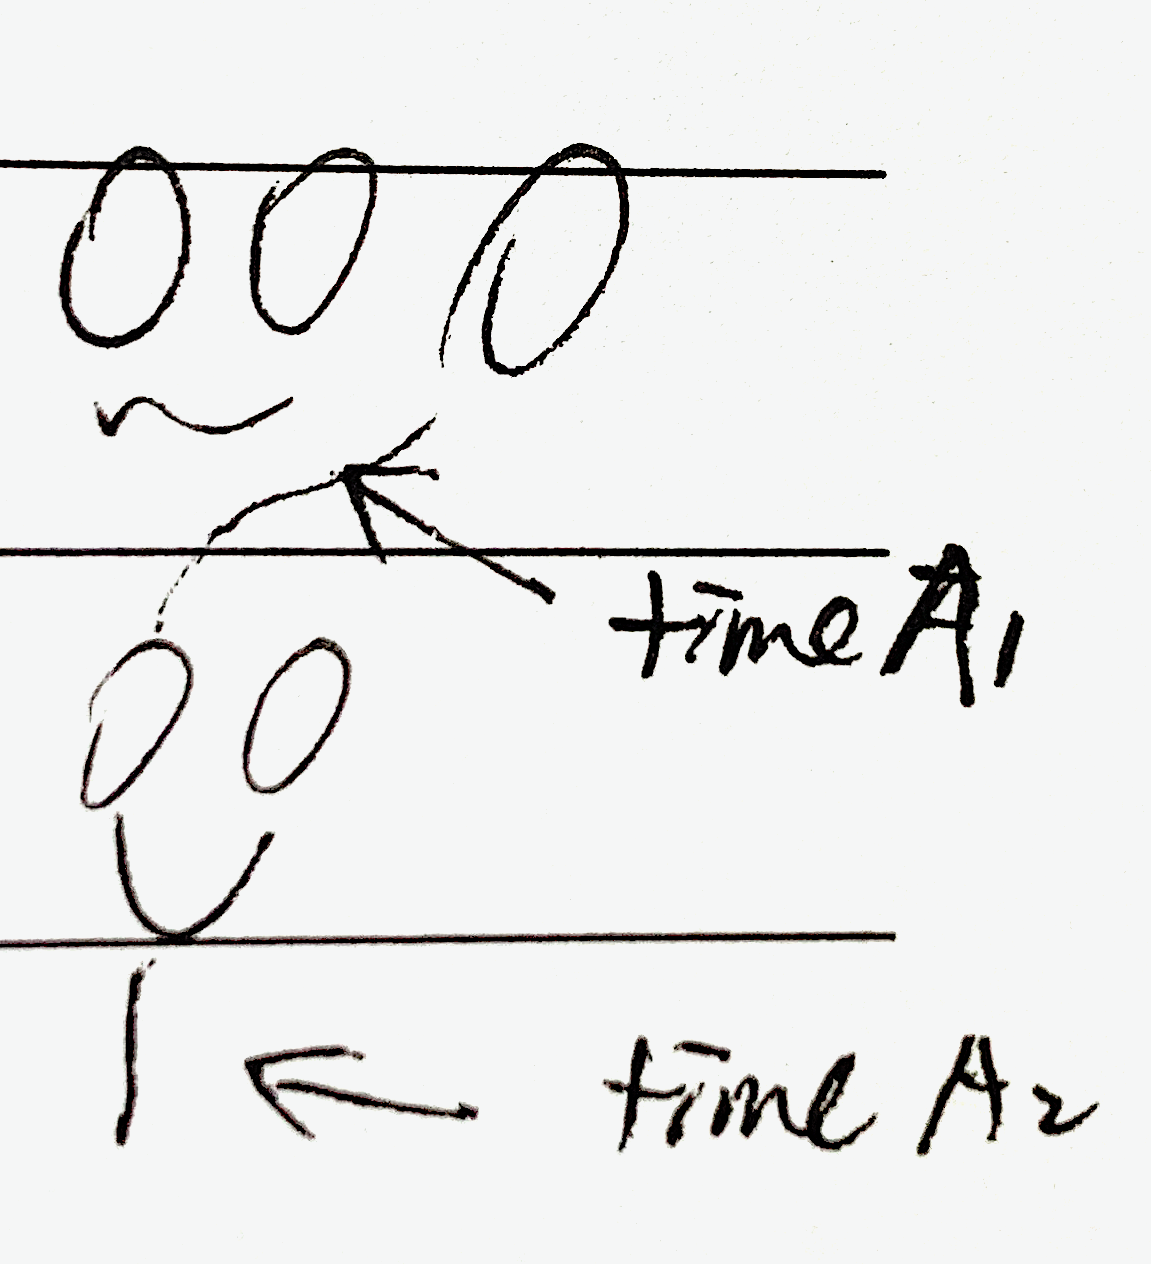 time A1
time A2